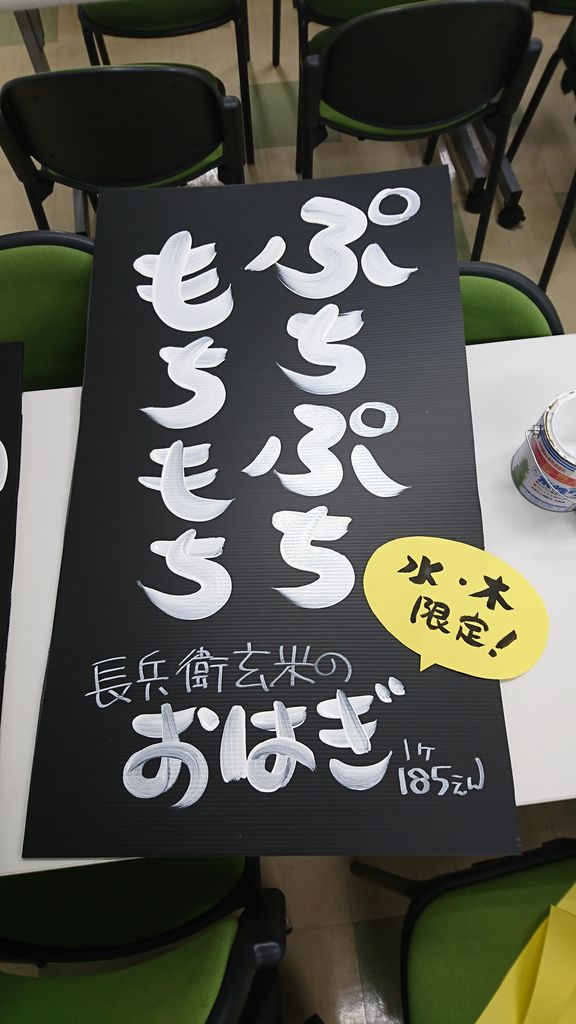 ぷちぷち
もちもち
水・木
限定!
長兵衛玄米の
おはぎ
1ヶ
185えん